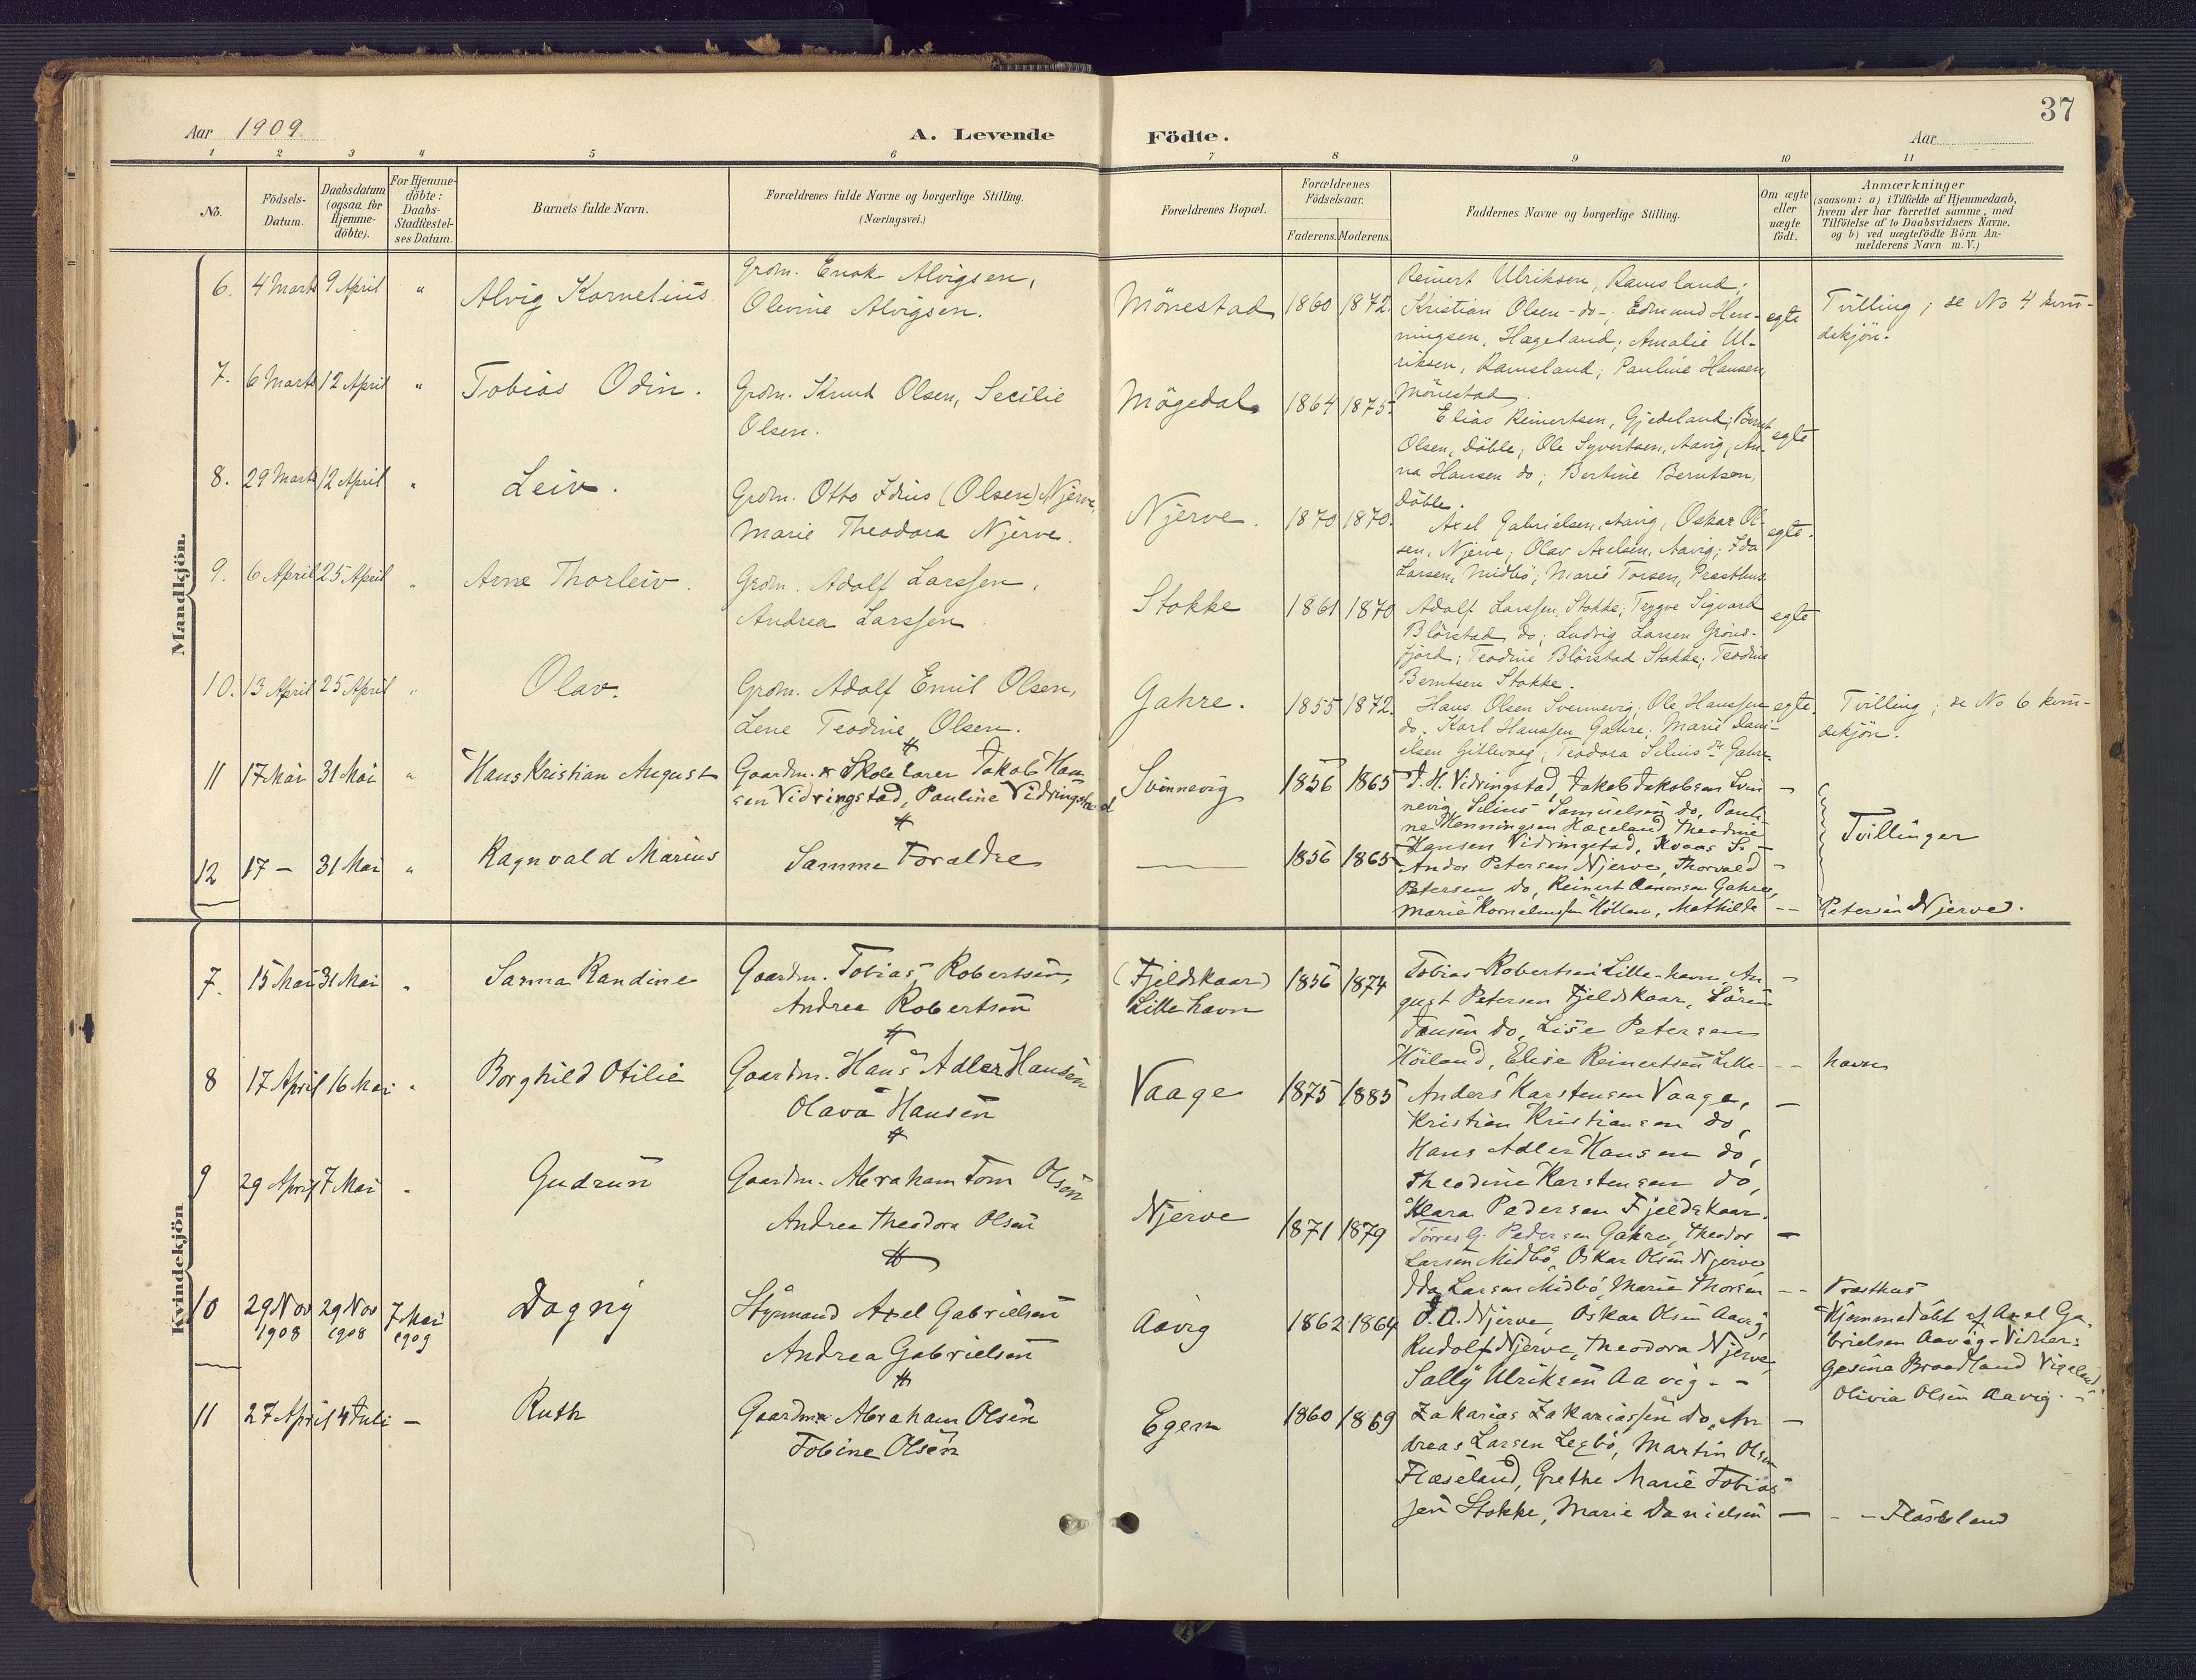 37
Aar 1909.
A. Levende
Födte.
Aar
1 2 3 4 5 6 7 8 9 10 11
No.
Födsels-
Datum.
Daabsdatum
(ogsaa for
Hjemme-
döbte).
For Hjemme-
döbte:
Daabs-
Stadfæstel-
ses Datum.
Barnets fulde Navn.
Forældrenes fulde Navne og borgerlige Stilling.
(Næringsvei.)
Forældrenes Bopæl.
Forældrenes
Födselsaar.
Faderens. Moderens.
Faddernes Navne og borgerlige Stilling.
Om ægte
eller
uægte
födt.
Anmærkninger
(saasom: a) i Tilfælde af Hjemmedaab,
hvem der har forrettet samme, med
Tilföielse af to Daabsvidners Navne.
og b) ved uægtefödte Börn An-
melderens Navn m. V.)
Mandkjön.
6. 4 Marts 9 April " Alvig Kornelius
Grdm. Enok Alvigsen,
Olevine Alvigsen.
Mönestad 1860 1872.
Reinert Ulriksen, Ramsland;
Kristian Olsen - do -; Edmund Hen-
ningsen, Hægeland; Amalie Ul-
riksen, Ramsland; Pauline Hansen,
Mönestad.
egte
Tvilling; se No 4 kvin-
dekjön.
7. 6 Marts 12 April " Tobias Odin.
Grdm. Knud Olsen, Secilie
Olsen.
Mögedal 1864 1875.
Elias Reinertsen, Gjedeland; Bernt
Olsen, Döble; Ole Syvertsen, Aavig; An-
na Hansen do; Bertine Berntsen,
Döble.
egte
8. 29 Marts 12 April " Leiv.
Grdm. Otto Idius (Olsen) Njerve,
Marie Theodora Njerve.
Njerve. 1870 1870.
Axel Gabrielsen, Aavig, Oskar Ol-
sen, Njerve; Olav Axelsen, Aavig; Ida
Larsen, Midbö; Marie Torsen, Præsthus.
egte.
9. 6 April 25 April " Arne Thorleiv.
Grdm. Adolf Larssen,
Andrea Larssen
Stokke 1861 1870
Adolf Larssen, Stokke; Trygve Sigvard
Blörstad do; Ludvig Larsen Gröns-
fjord; Teodine Blörstad Stokke; Teodine
Berntsen Stokke.
egte
10. 13 April 25 April " Olav.
Grdm. Adolf Emil Olsen,
Lene Teodine Olsen.
Gahre. 1855 1872.
Hans Olsen Svennevig, Ole Hanssen
do. Karl Hanssen Gahre; Marie Dani-
elsen Gillevag; Teodora Silius dr Gahre
egte.
Tvilling; se No 6 kvin-
dekjön.
11 17 Mai 31 Mai " Hans Kristian August
Gaardm. & Skolelærer Jakob Han-
sen Vidringstad, Pauline Vidringstad
Svinnevig 1856 1865
J. H. Vidringstad, Jakob Jakobsen Svin
nevig, Silius Samuelsen do, Pauli-
ne Henningsen Hægeland, Theodine
Hansen Vidringstad,
Tvillinger
12 17 - 31 Mai " Ragnvald Marius
Samme Forældre
— 1856 1865
Andor Petersen Njerve, Thorvald
Petersen do, Reinert Aanonsen Gahre,
Marie Kornelinssen Höllen, Mathilde -- Petersen Njerve.
Kvindekjön
7. 15 Mai 31 Mai " Sanna Randine
Gaardm. Tobias Robertsen,
Andrea Robertsen
(Fjeldskaar)
Lillehavn
1856 1874
Tobias Robertsen Lille-havn, Au-
gust Petersen Fjeldskaar, Sören
Jansen do, Lise Petersen
Höiland, Elise Reinertsen Lille- -- havn
8 17 April 16 Mai " Borghild Otilie
Gaardm. Hans Adler Hansen
Olava Hansen
Vaage 1875 1885
Anders Karstensen Vaage,
Kristian Kristiansen do,
Hans Adler Hansen do,
Theodine Karstensen do,
Klara Pedersen Fjeldskaar.
9 29 April 7 Mai " Gudrun
Gaardm. Abraham Tom Olsen
Andrea Theodora Olsen
Njerve 1871 1879
Törres G. Pedersen Gahre, Theodor
Larsen Midbö, Oskar Olsen Njerve,
Ida Larsen Midbö, Marie Thorsen -- Præsthus
10 29 Nov 1908 29 Nov 1908 7 Mai 1909 Dagny
Styrmand Axel Gabrielsen
Andrea Gabrielsen
Aavig 1862 1864
O. A. Njerve, Oskar Olsen Aavig,
Rudolf Njerve, Theodora Njerve,
Sally Ulriksen Aavig. -
Hjemmedöbt af Axel Ga-
brielsen Aavig. Vidner:
Gesine Braadland Vigeland
Olivia Olsen Aavig. -
11 27 April 4 Juli — Ruth
Gaardm. Abraham Olsen
Tobine Olsen
Egem 1860 1869
Zakarias Zakariassen do, An-
dreas Larsen Legbö, Martin Olsen
Flæseland, Grethe Marie Tobias
sen Stokke, Marie Danielsen — -- Flaseland